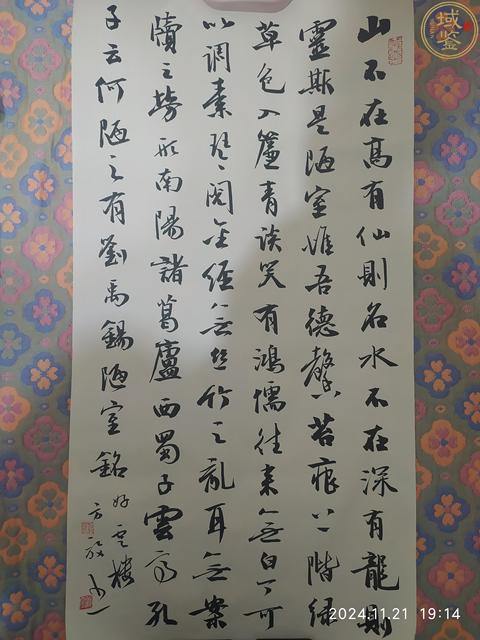 山不在高有仙則名水不在深有龍則
靈斯是陋室惟吾德馨苔痕上階綠
草色入簾青談笑有鴻儒往來無白丁可
以調素琴閱金經無絲竹之亂耳無案
牘之勞形南陽諸葛廬西蜀子雲亭孔
子云何陋之有劉禹錫陋室銘
域鉴
2024.11.21 19:14